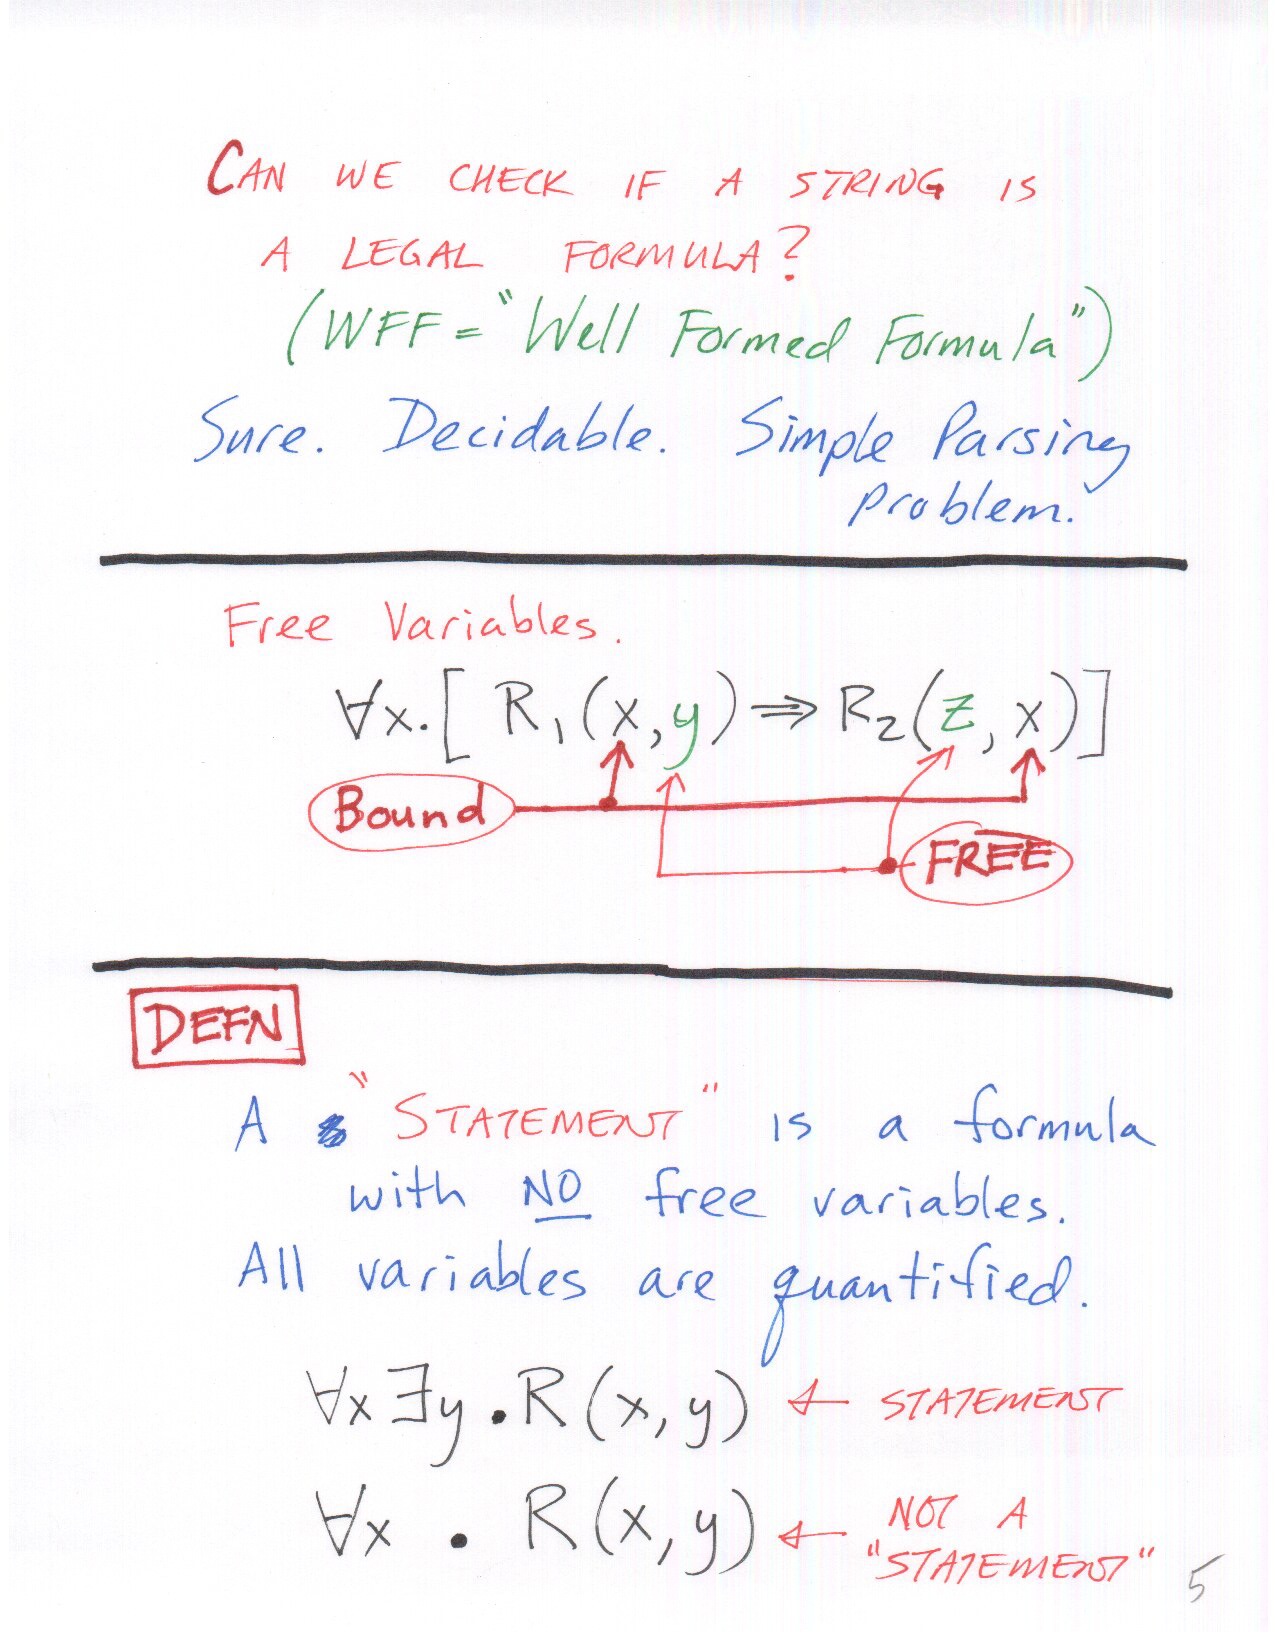 CAN WE CHECK IF A STRING IS
A LEGAL FORMULA?
(WFF = "Well Formed Formula")
Sure. Decidable. Simple Parsing
problem.
Free Variables.
∀x.[ R₁(x,y) ⇒ R₂(z,x)]
Bound
FREE
DEFN
A "STATEMENT" is a formula
with NO free variables.
All variables are quantified.
∀x ∃y . R(x,y) ← STATEMENT
∀x . R(x,y) ← NOT A
"STATEMENT"
5